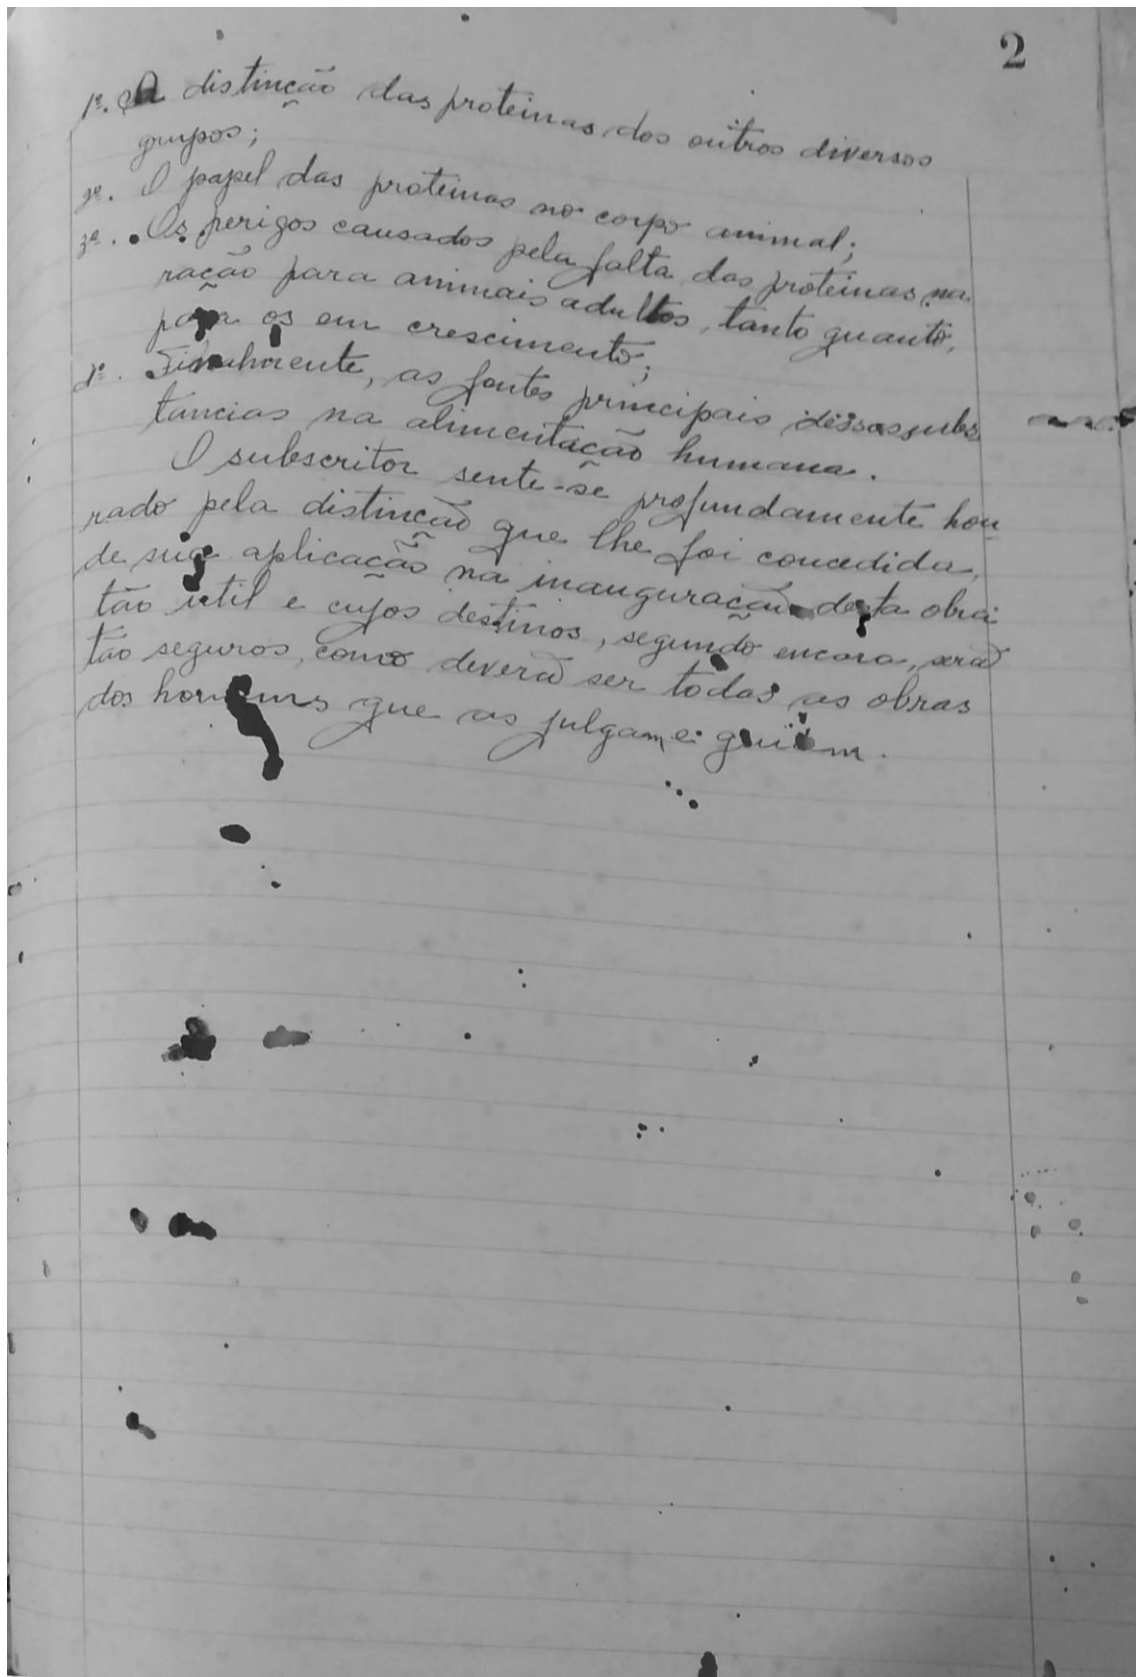 2
1º. A distinção das proteinas dos outros diversos
grupos;
2º. O papel das proteinas no corpo animal;
3º. Os perigos causados pela falta das proteinas na
ração para animais adultos, tanto quanto,
para os em crescimento;
4º. Finalmente, as fontes principais dessas subs
tancias na alimentação humana.
O subscritor sente-se profundamente hon
rado pela distinção que lhe foi concedida,
de sua aplicação na inauguração desta obra
tão util e cujos destinos, segundo encara, serão
tão seguros, como deverá ser todas as obras
dos homens que as julgam e guiem.